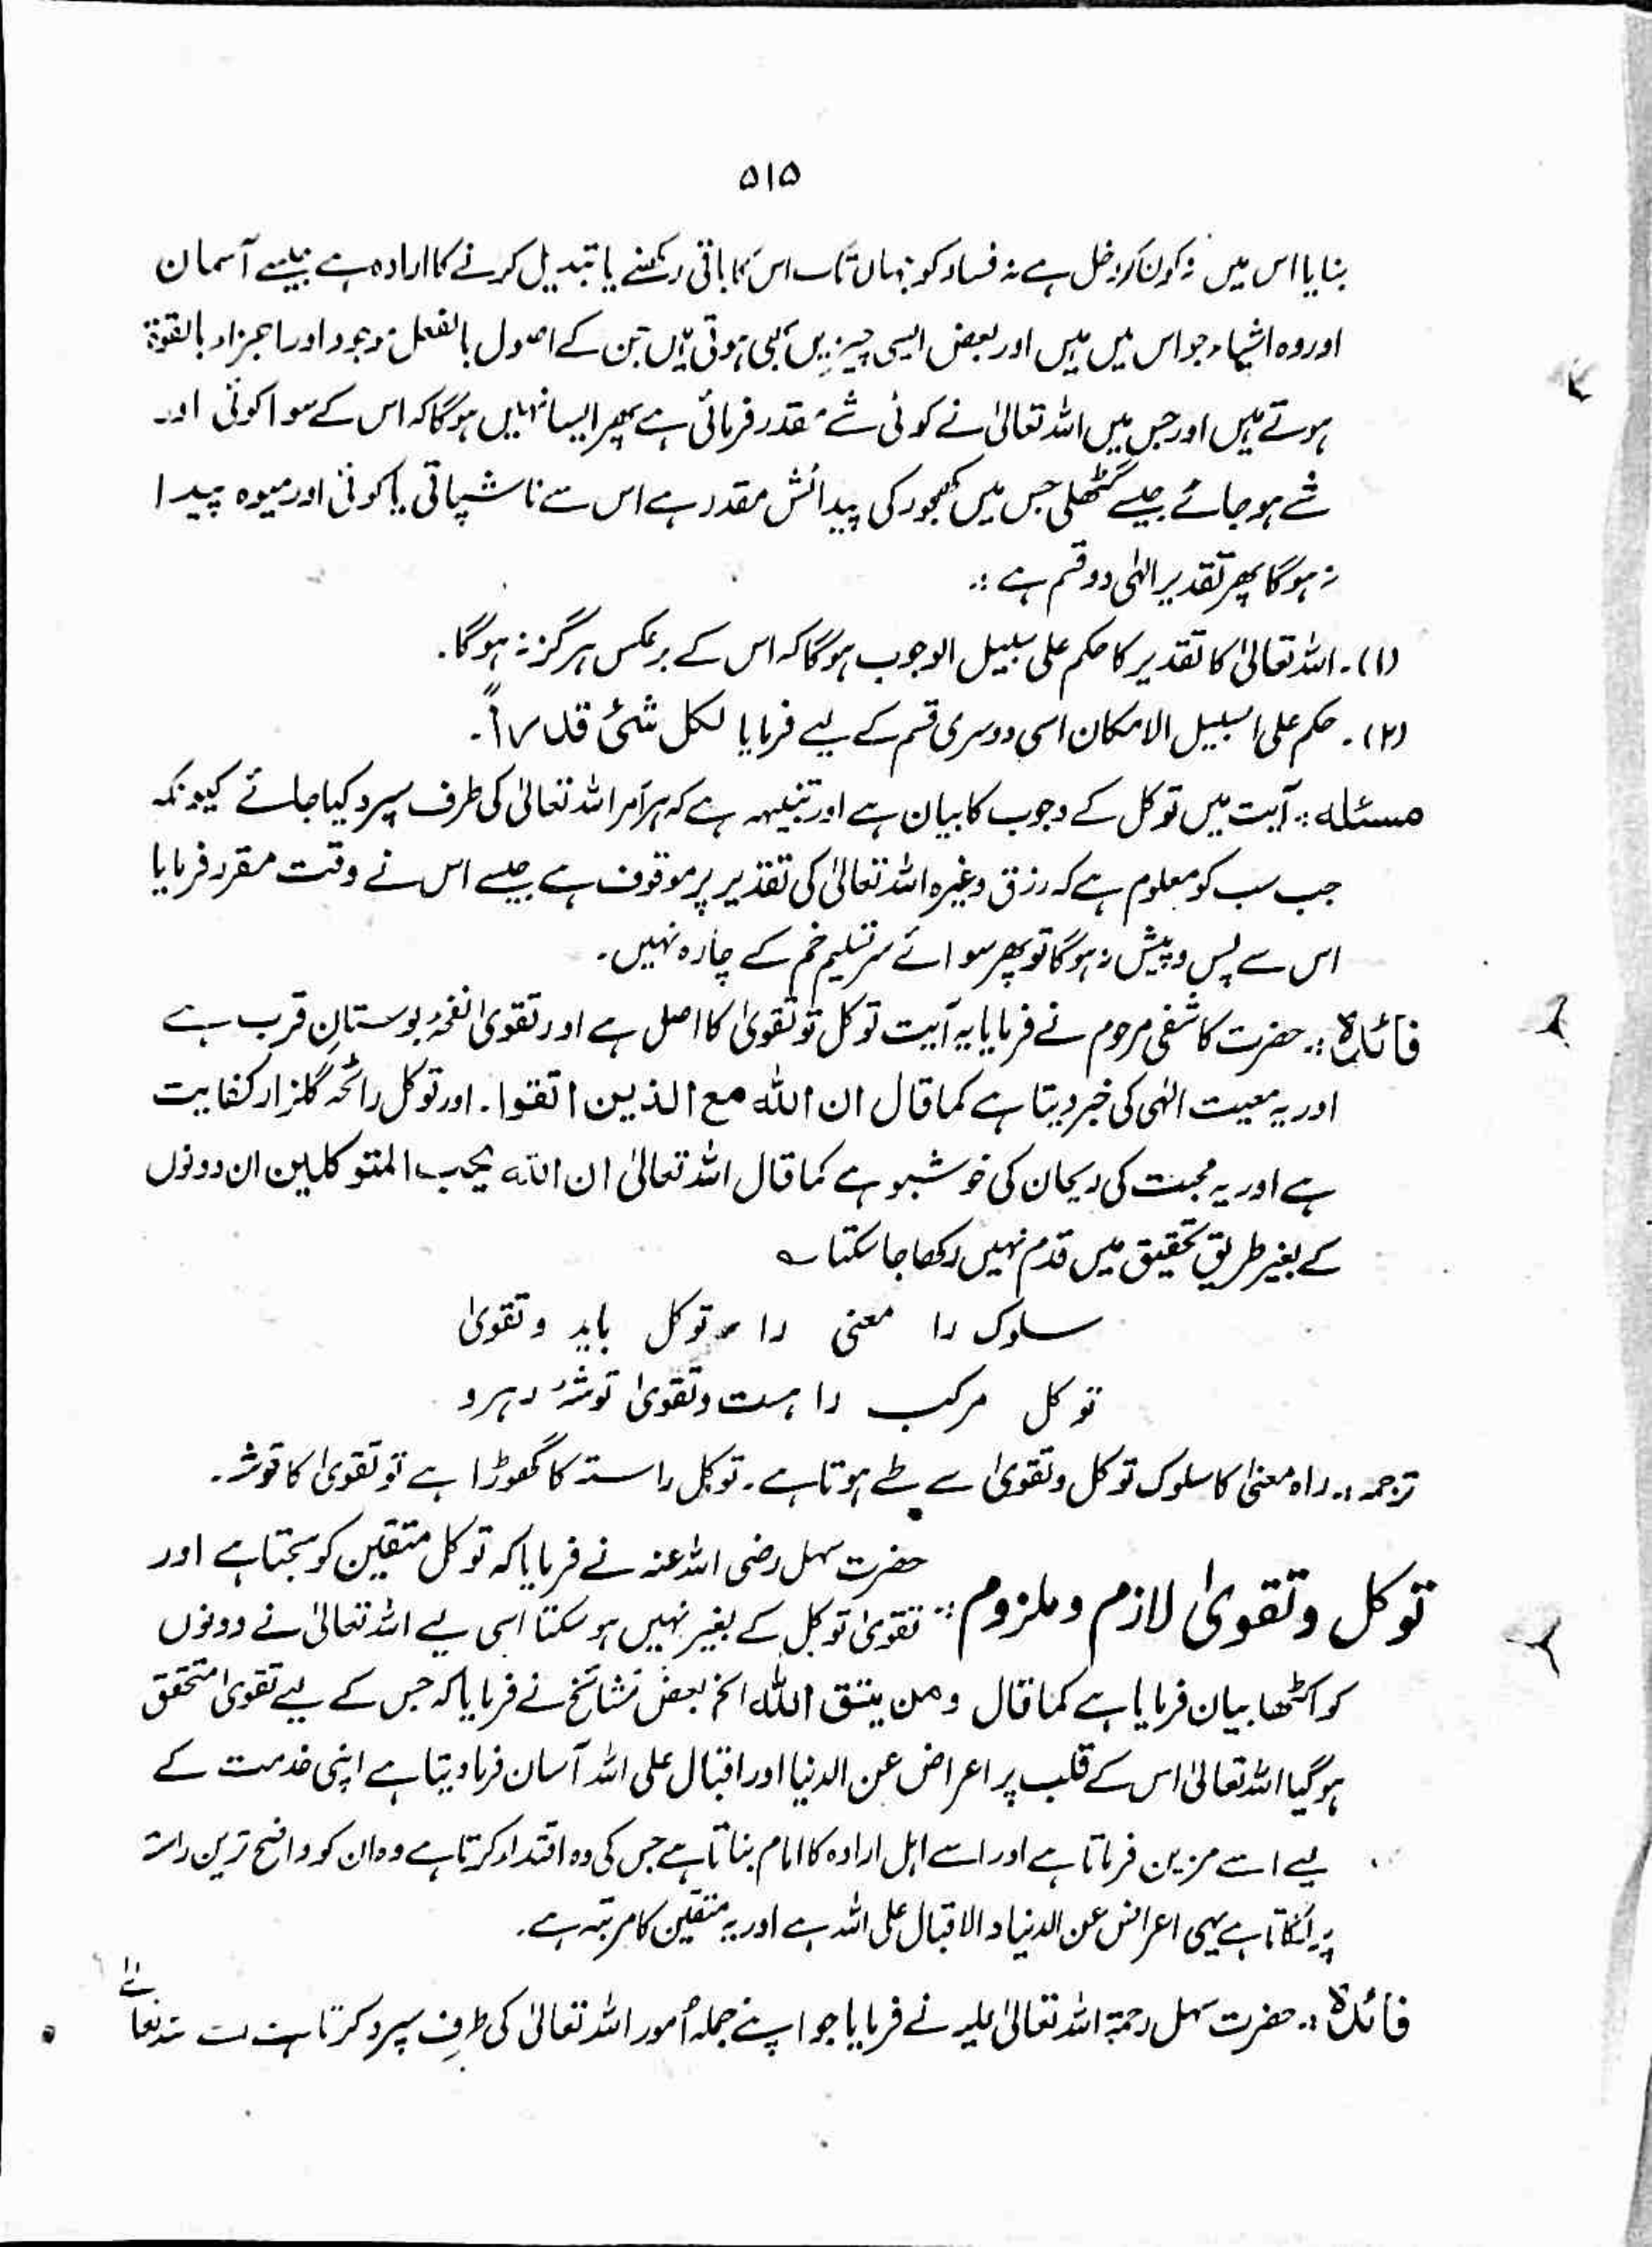 ۵۱۵
بنایا اس میں نہ کون کو دخل ہے نہ فساد کو جہاں تک اس کا باقی رکھنے یا تبدیل کرنے کا ارادہ ہے جیسے آسمان
اور وہ اشیاء جو اس میں ہیں اور بعض ایسی چیزیں بھی ہوتی ہیں جن کے اصول بالفعل موجود اور اجزاء بالقوۃ
ہوتے ہیں اور جس میں اللہ تعالیٰ نے کوئی شے مقدر فرمائی ہے پھر ایسا نہیں ہوگا کہ اس کے سوا کوئی اور
شے ہو جائے جیسے گٹھلی جس میں کھجور کی پیدائش مقدر ہے اس سے ناشپاتی یا کوئی اور میوہ پیدا
نہ ہوگا پھر تقدیر الہٰی دو قسم ہے :۔
(۱)۔ اللہ تعالیٰ کا تقدیر کا حکم علی سبیل الوجوب ہوگا کہ اس کے برعکس ہرگز نہ ہوگا۔
(۲)۔ حکم علی اسبیل الامکان اسی دوسری قسم کے لیے فرمایا لکل شئی قدراً۔
مسئلہ :۔ آیت میں توکل کے وجوب کا بیان ہے اور تنبیہہ ہے کہ ہر امر اللہ تعالیٰ کی طرف سپرد کیا جائے کیونکہ
جب سب کو معلوم ہے کہ رزق وغیرہ اللہ تعالیٰ کی تقدیر پر موقوف ہے جیسے اس نے وقت مقرر فرمایا
اس سے پس و پیش نہ ہوگا تو پھر سوائے سر تسلیم خم کے چارہ نہیں۔
فائدہ :۔ حضرت کاشفی مرحوم نے فرمایا یہ آیت توکل تو تقویٰ کا اصل ہے اور تقویٰ نفحۂ بوستانِ قرب ہے
اور یہ معیت الہٰی کی خبر دیتا ہے کما قال ان اللہ مع الذین اتقوا۔ اور توکل رائحہ گلزار کفایت
ہے اور یہ محبت کی ریحان کی خوشبو ہے کما قال اللہ تعالیٰ ان اللہ یحب المتوکلین ان دونوں
کے بغیر طریق تحقیق میں قدم نہیں رکھا جا سکتا ؎
سلوک را معنی را توکل باید و تقویٰ
توکل مرکب را ہست و تقویٰ توشۂ رہرو
ترجمہ :۔ راہ معنیٰ کا سلوک توکل و تقویٰ سے طے ہوتا ہے۔ توکل راستہ کا گھوڑا ہے تو تقویٰ کا توشہ۔
توکل و تقویٰ لازم و ملزوم :۔ حضرت سہل رضی اللہ عنہ نے فرمایا کہ توکل متقین کو سجتا ہے اور
تقویٰ توکل کے بغیر نہیں ہو سکتا اسی لیے اللہ تعالیٰ نے دونوں
کو اکٹھا بیان فرمایا ہے کما قال ومن یتق اللہ الخ بعض مشائخ نے فرمایا کہ جس کے لیے تقویٰ متحقق
ہو گیا اللہ تعالیٰ اس کے قلب پر اعراض عن الدنیا اور اقبال علی اللہ آسان فرما دیتا ہے اپنی خدمت کے
لیے اسے مزین فرماتا ہے اور اسے اہل ارادہ کا امام بناتا ہے جس کی وہ اقتداء کرتا ہے وہ ان کو واضح ترین راستہ
پر لگاتا ہے یہی اعراض عن الدنیا والاقبال علی اللہ ہے اور یہ متقین کا مرتبہ ہے۔
فائدہ :۔ حضرت سہل رحمۃ اللہ تعالیٰ علیہ نے فرمایا جو اپنے جملہ اُمور اللہ تعالیٰ کی طرف سپرد کرتا ہے